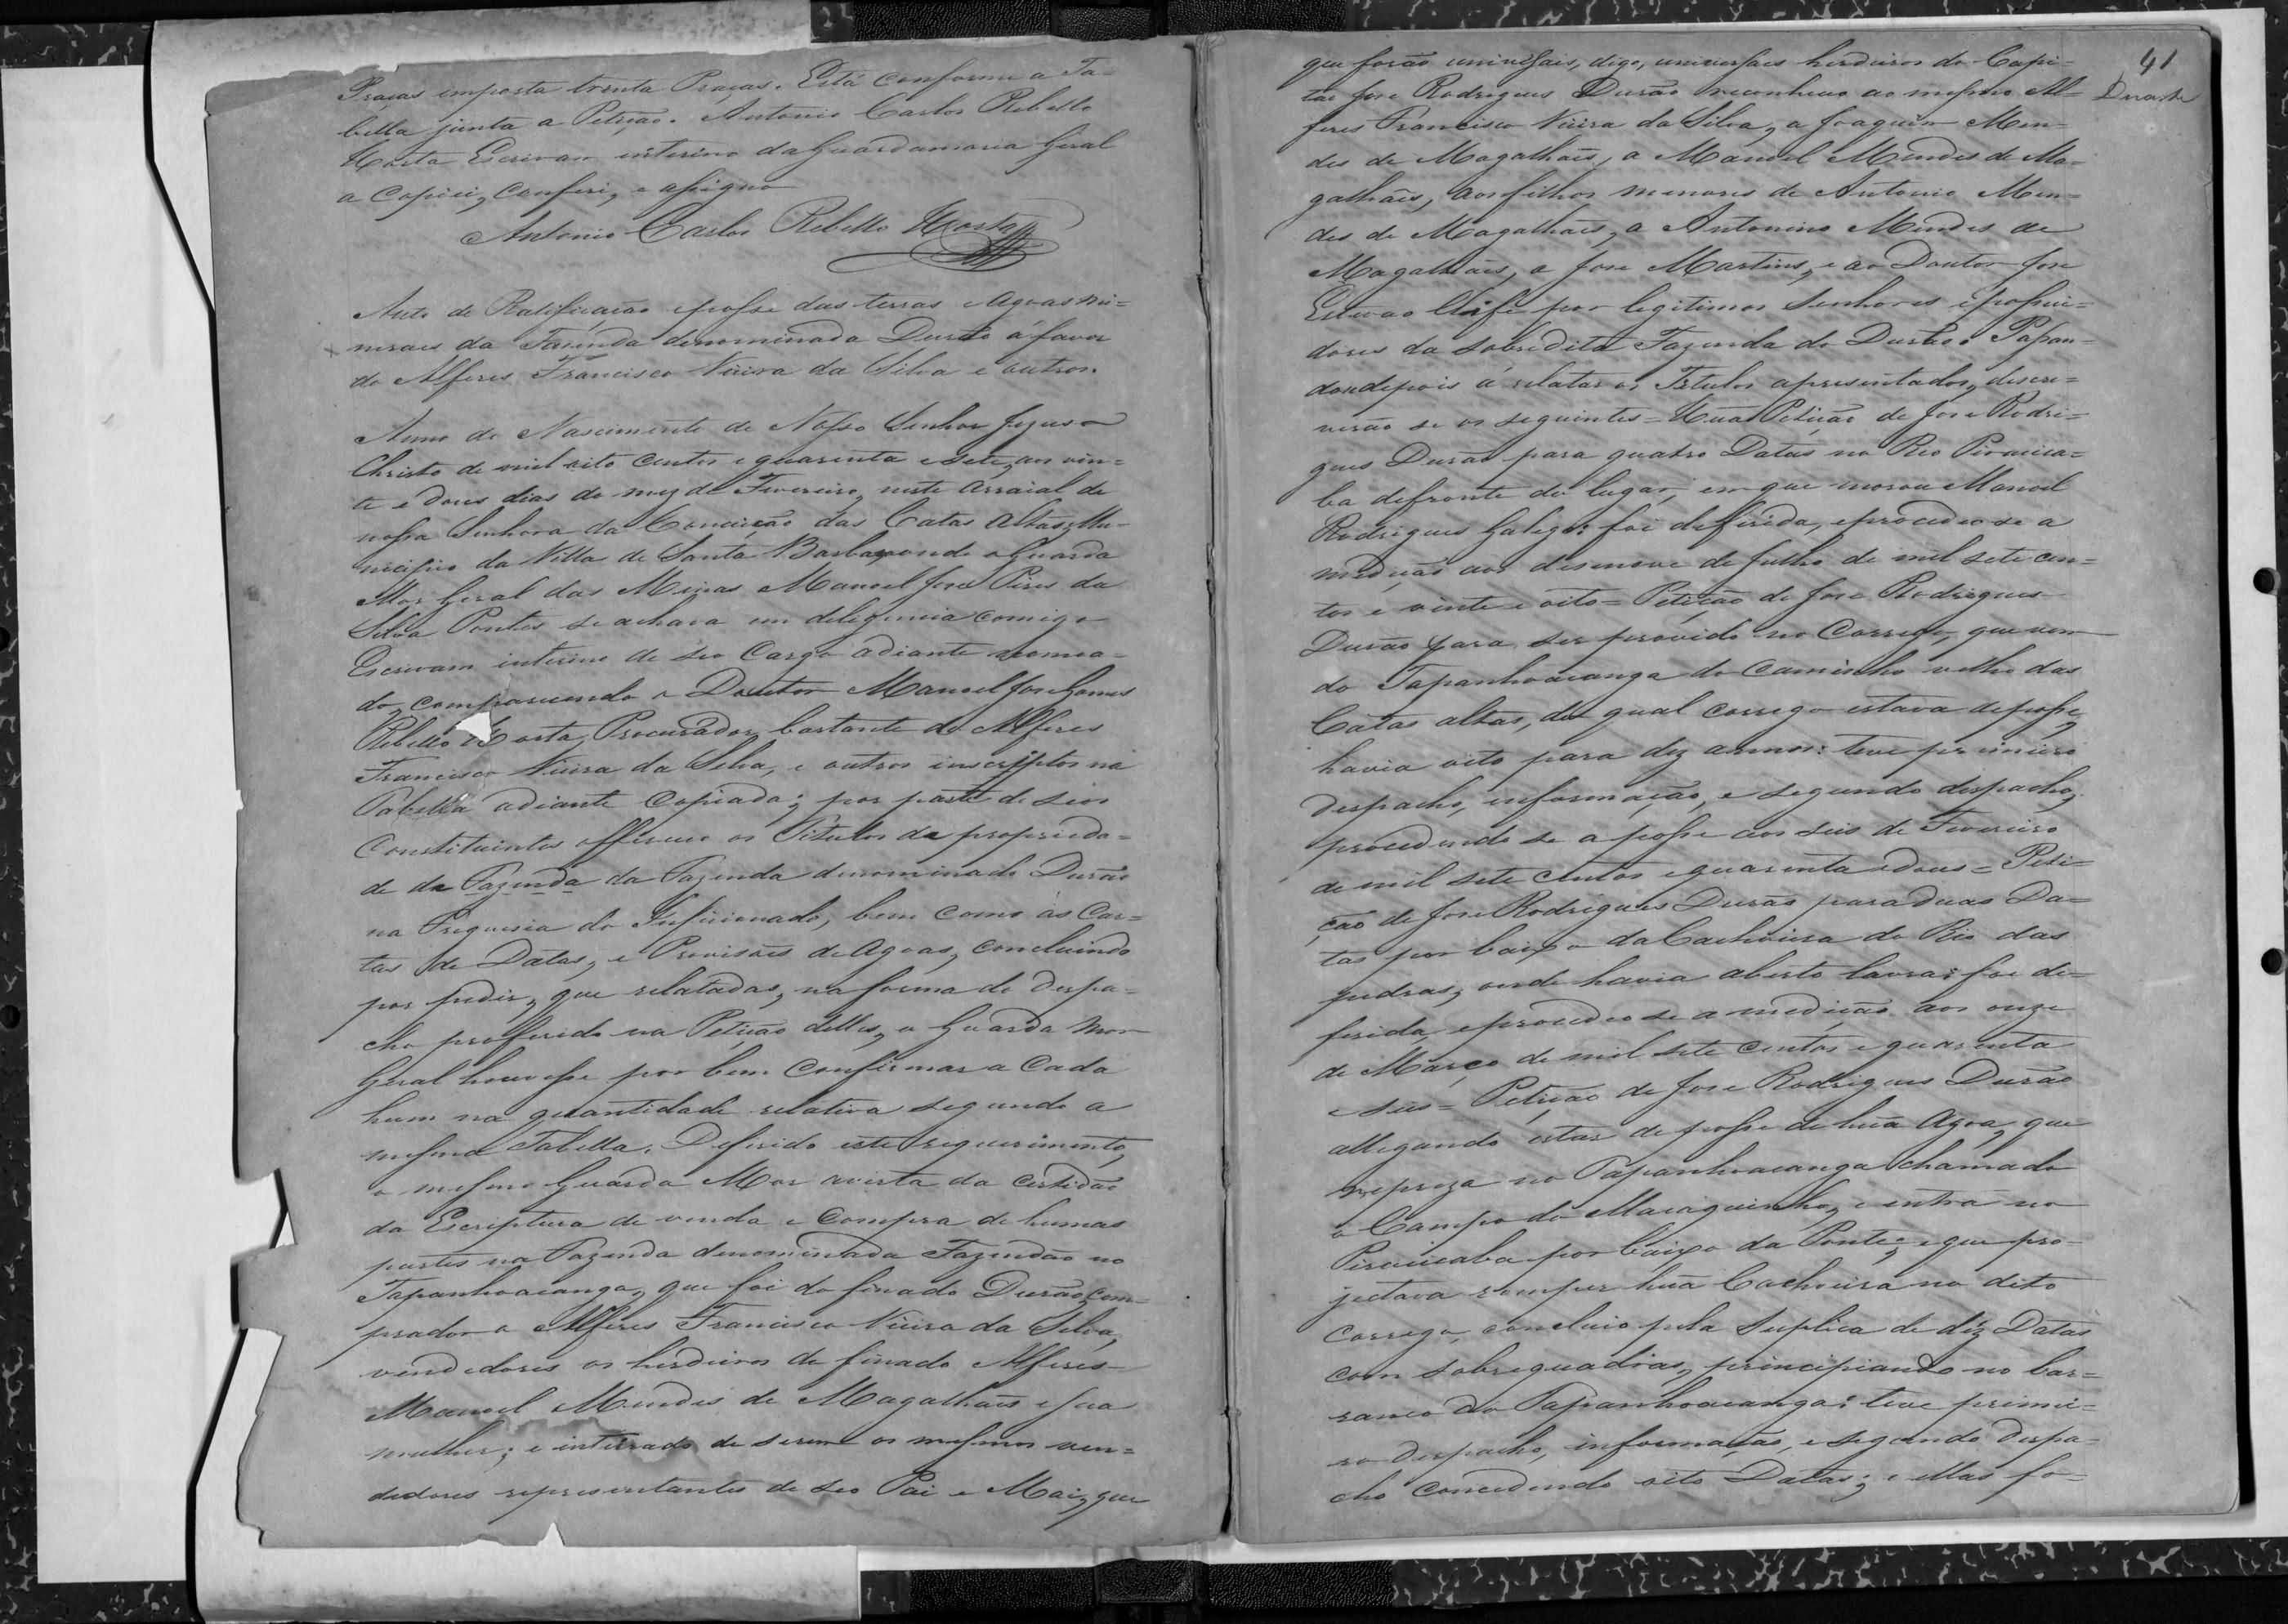 Praças importa trenta Praças. Está conforme a Ta-
bella junta a Petição. Antonio Carlos Rebello
Horta Escrivam interino da Guardamoria Geral
a Copiei, conferi, e assigno
Antonio Carlos Rebello Horta
Auto de Ratificação e posse das terras e Agoas mi=
neraes da Fazenda denominada Durão á favor
do Alferes Francisco Vieira da Silva e outros.
Anno do Nascimento de Nosso Senhor Jezus
Christo de mil oito centos e quarenta e sete, aos vin=
te e dous dias do mez de Fevereiro, neste Arraial de
nossa Senhora da Conceição das Catas Altas, Mu-
nicipio da Villa de Santa Barbara, onde o Guarda
Mor Geral das Minas Manoel Jose Pires da
Silva Pontes se achava em deligencia comigo
Escrivam interino de seo Cargo adiante nomea-
do, comparecendo o Doutor Manoel Jose Gomes
Rebello Horta, Procurador bastante do Alferes
Francisco Vieira da Silva, e outros inscriptos na
Tabella adiante Copiada; por parte de seos
Constituintes offereceo os Titulos da proprieda=
de da Fazenda da Fazenda denominada Durão
na Freguesia do Inficionado, bem como as Car=
tas de Datas, e Provisões de Agoas, concluindo
por pedir, que relatadas, na forma do despa=
cho profferido na Petição delles, o Guarda Mor
Geral houvesse por bem Confirmar a Cada
hum na quantidade relativa segundo a
mesma Tabella. Deferido este requerimento,
o mesmo Guarda Mor a vista da Certidão
da Escriptura de venda e Compra de humas
partes na Fazenda denominada Fazendão no
Tapanhoacanga, que foi do finado Durão, com-
prador o Alferes Francisco Vieira da Silva,
vendedores os herdeiros do finado Alferes
Manoel Mendes de Magalhães e sua
mulher; e inteirado de serem os mesmos ven=
dedores representantes de seo Pai e Mai, que
41
Duarte
que forão univesais, digo, universaes herdeiros do Capi=
tão Jose Rodrigues Durão reconheceo ao mesmo Al=
feres Francisco Vieira da Silva, a Joaquim Men-
des de Magalhães, a Manoel Mendes de Ma-
galhães, aos filhos menores de Antonio Men-
des de Magalhães, a Antonino Mendes de
Magalhães, a Jose Martins, e ao Doutor Jose
Estevao por legitimos Senhores e possui=
dores da sobredita Fazenda do Durão. Passan-
do depois á relatar os Titulos apresentados, descre=
verão se os seguintes = Hũa Petição de Jose Rodri=
gues Durão para quatro Datas no Rio Piracica=
ba defronte do lugar, em que morou Manoel
Rodrigues Galego: foi defferida, e procedeo se a
medição aos desenove de Julho de mil sete cen=
tos e vinte e oito = Petição de Jose Rodrigues
Durão para ser provido no Corrego, que vem
do Tapanhoacanga do Caminho velho das
Catas altas, do qual corrego estava de posse,
havia oito para dez annos: teve primeiro
despacho, informação, e segundo despacho,
procedendo se a posse aos seis de Fevereiro
de mil sete centos e quarenta e dous = Peti=
ção de Jose Rodrigues Durão para duas Da=
tas por baixo da Cachoeira do Rio das
pedras, onde havia aberto lavra: foi de=
ferida, e procedeo se a medição aos onze
de Março de mil sete centos e quarenta
e seis = Petição de Jose Rodrigues Durão
allegando estar de posse de hũa Agoa, que
represa no Tapanhoacanga chamado
o Campo do Maraquinho, e entra no
Piracicaba por baixo da Ponte; e que pro-
jectava romper hũa Cachoeira no dito
Corrego, concluio pela suplica de déz Datas
com sobrequadras, principiando no bar=
ranco do Tapanhoacanga: teve primei=
ro despacho, informação, e segundo despa-
cho concedendo oito Datas; e ellas fo=